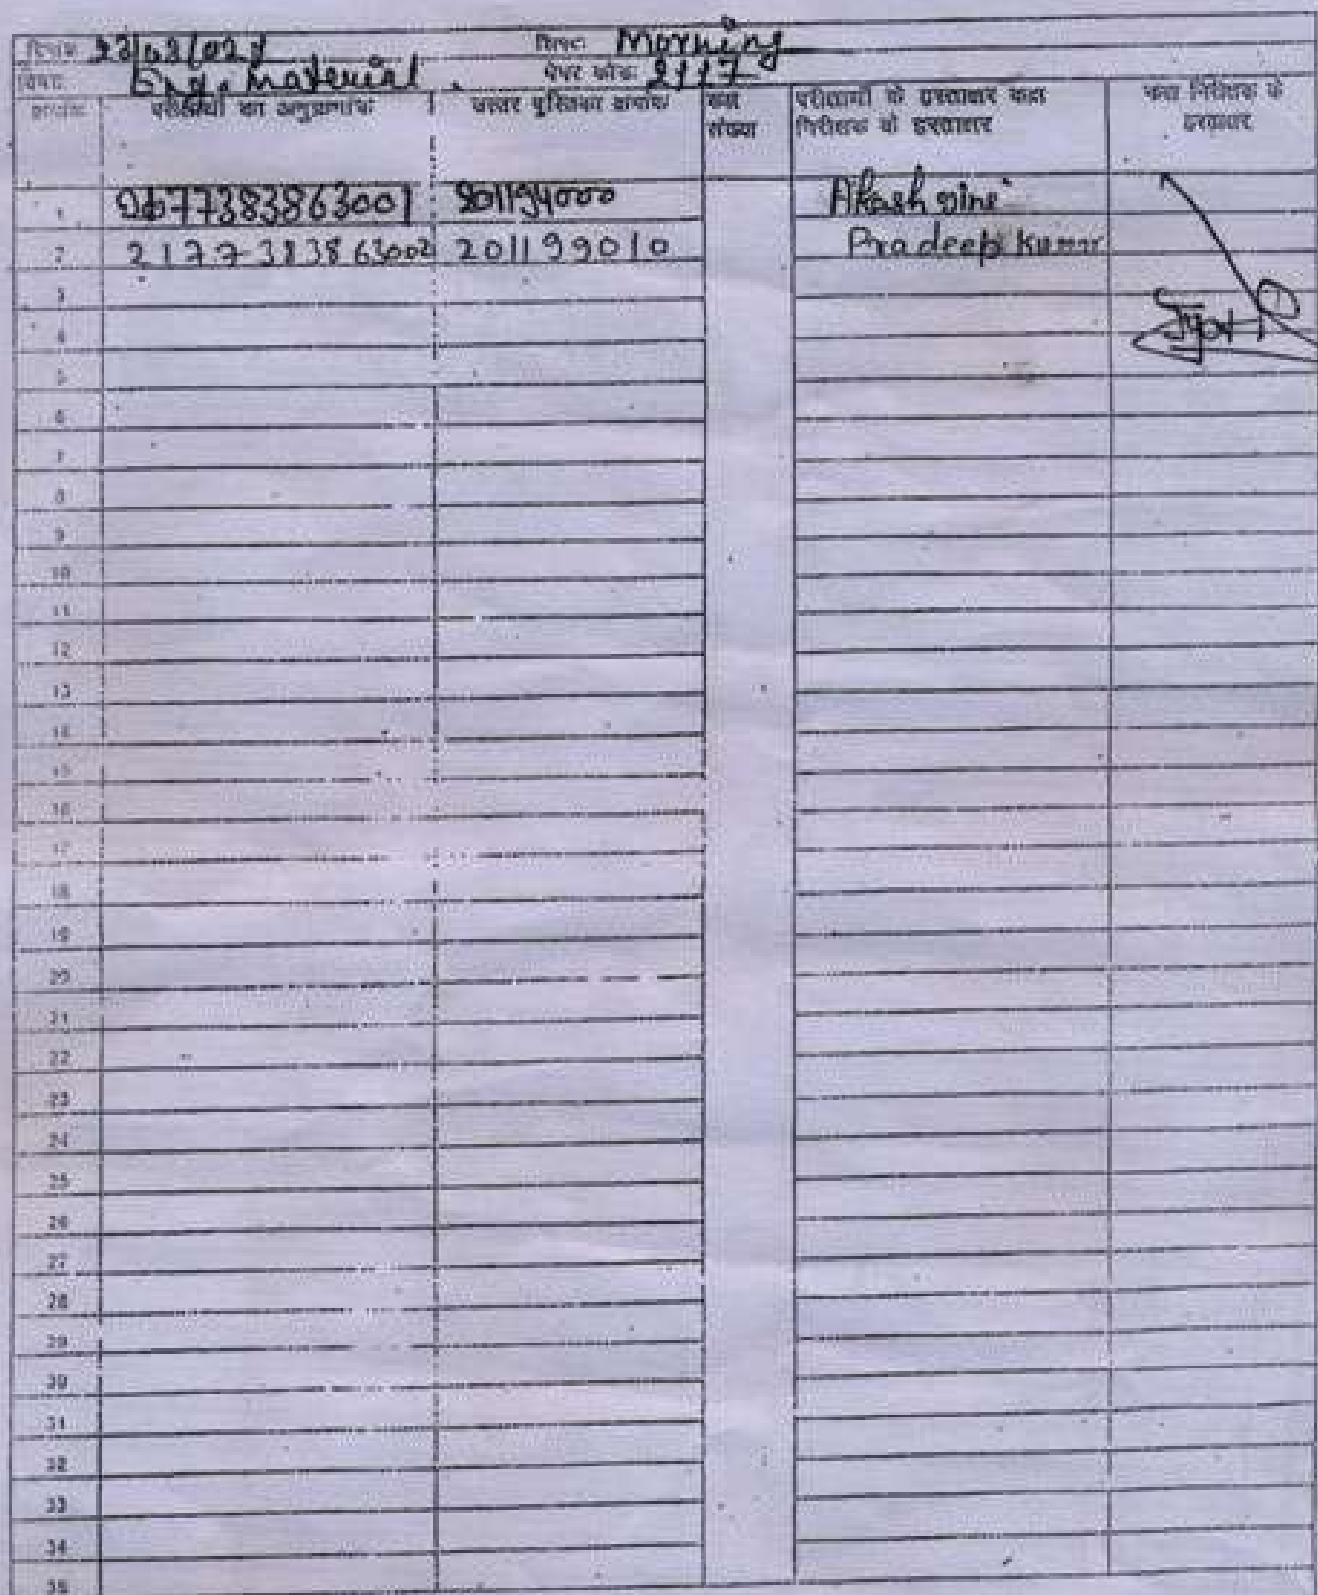 दिनांक 23/02/02
शिफ्टः Morning
विषयः Eng. material.
पेपर कोडः 2117
क्रमांक
परीक्षार्थी का अनुक्रमांक
उत्तर पुस्तिका क्रमांक
कक्ष संख्या
परीक्षार्थी के हस्ताक्षर कक्ष निरीक्षक के हस्ताक्षर
कक्ष निरीक्षक के हस्ताक्षर
1
Akash
2 2177383863002 201199010 Pradeep Kumar
3
Jyoti
4
5
6
7
8
9
10
11
12
13
14
15
16
17
18
19
20
21
22
23
24
25
26
27
28
29
30
31
32
33
34
35